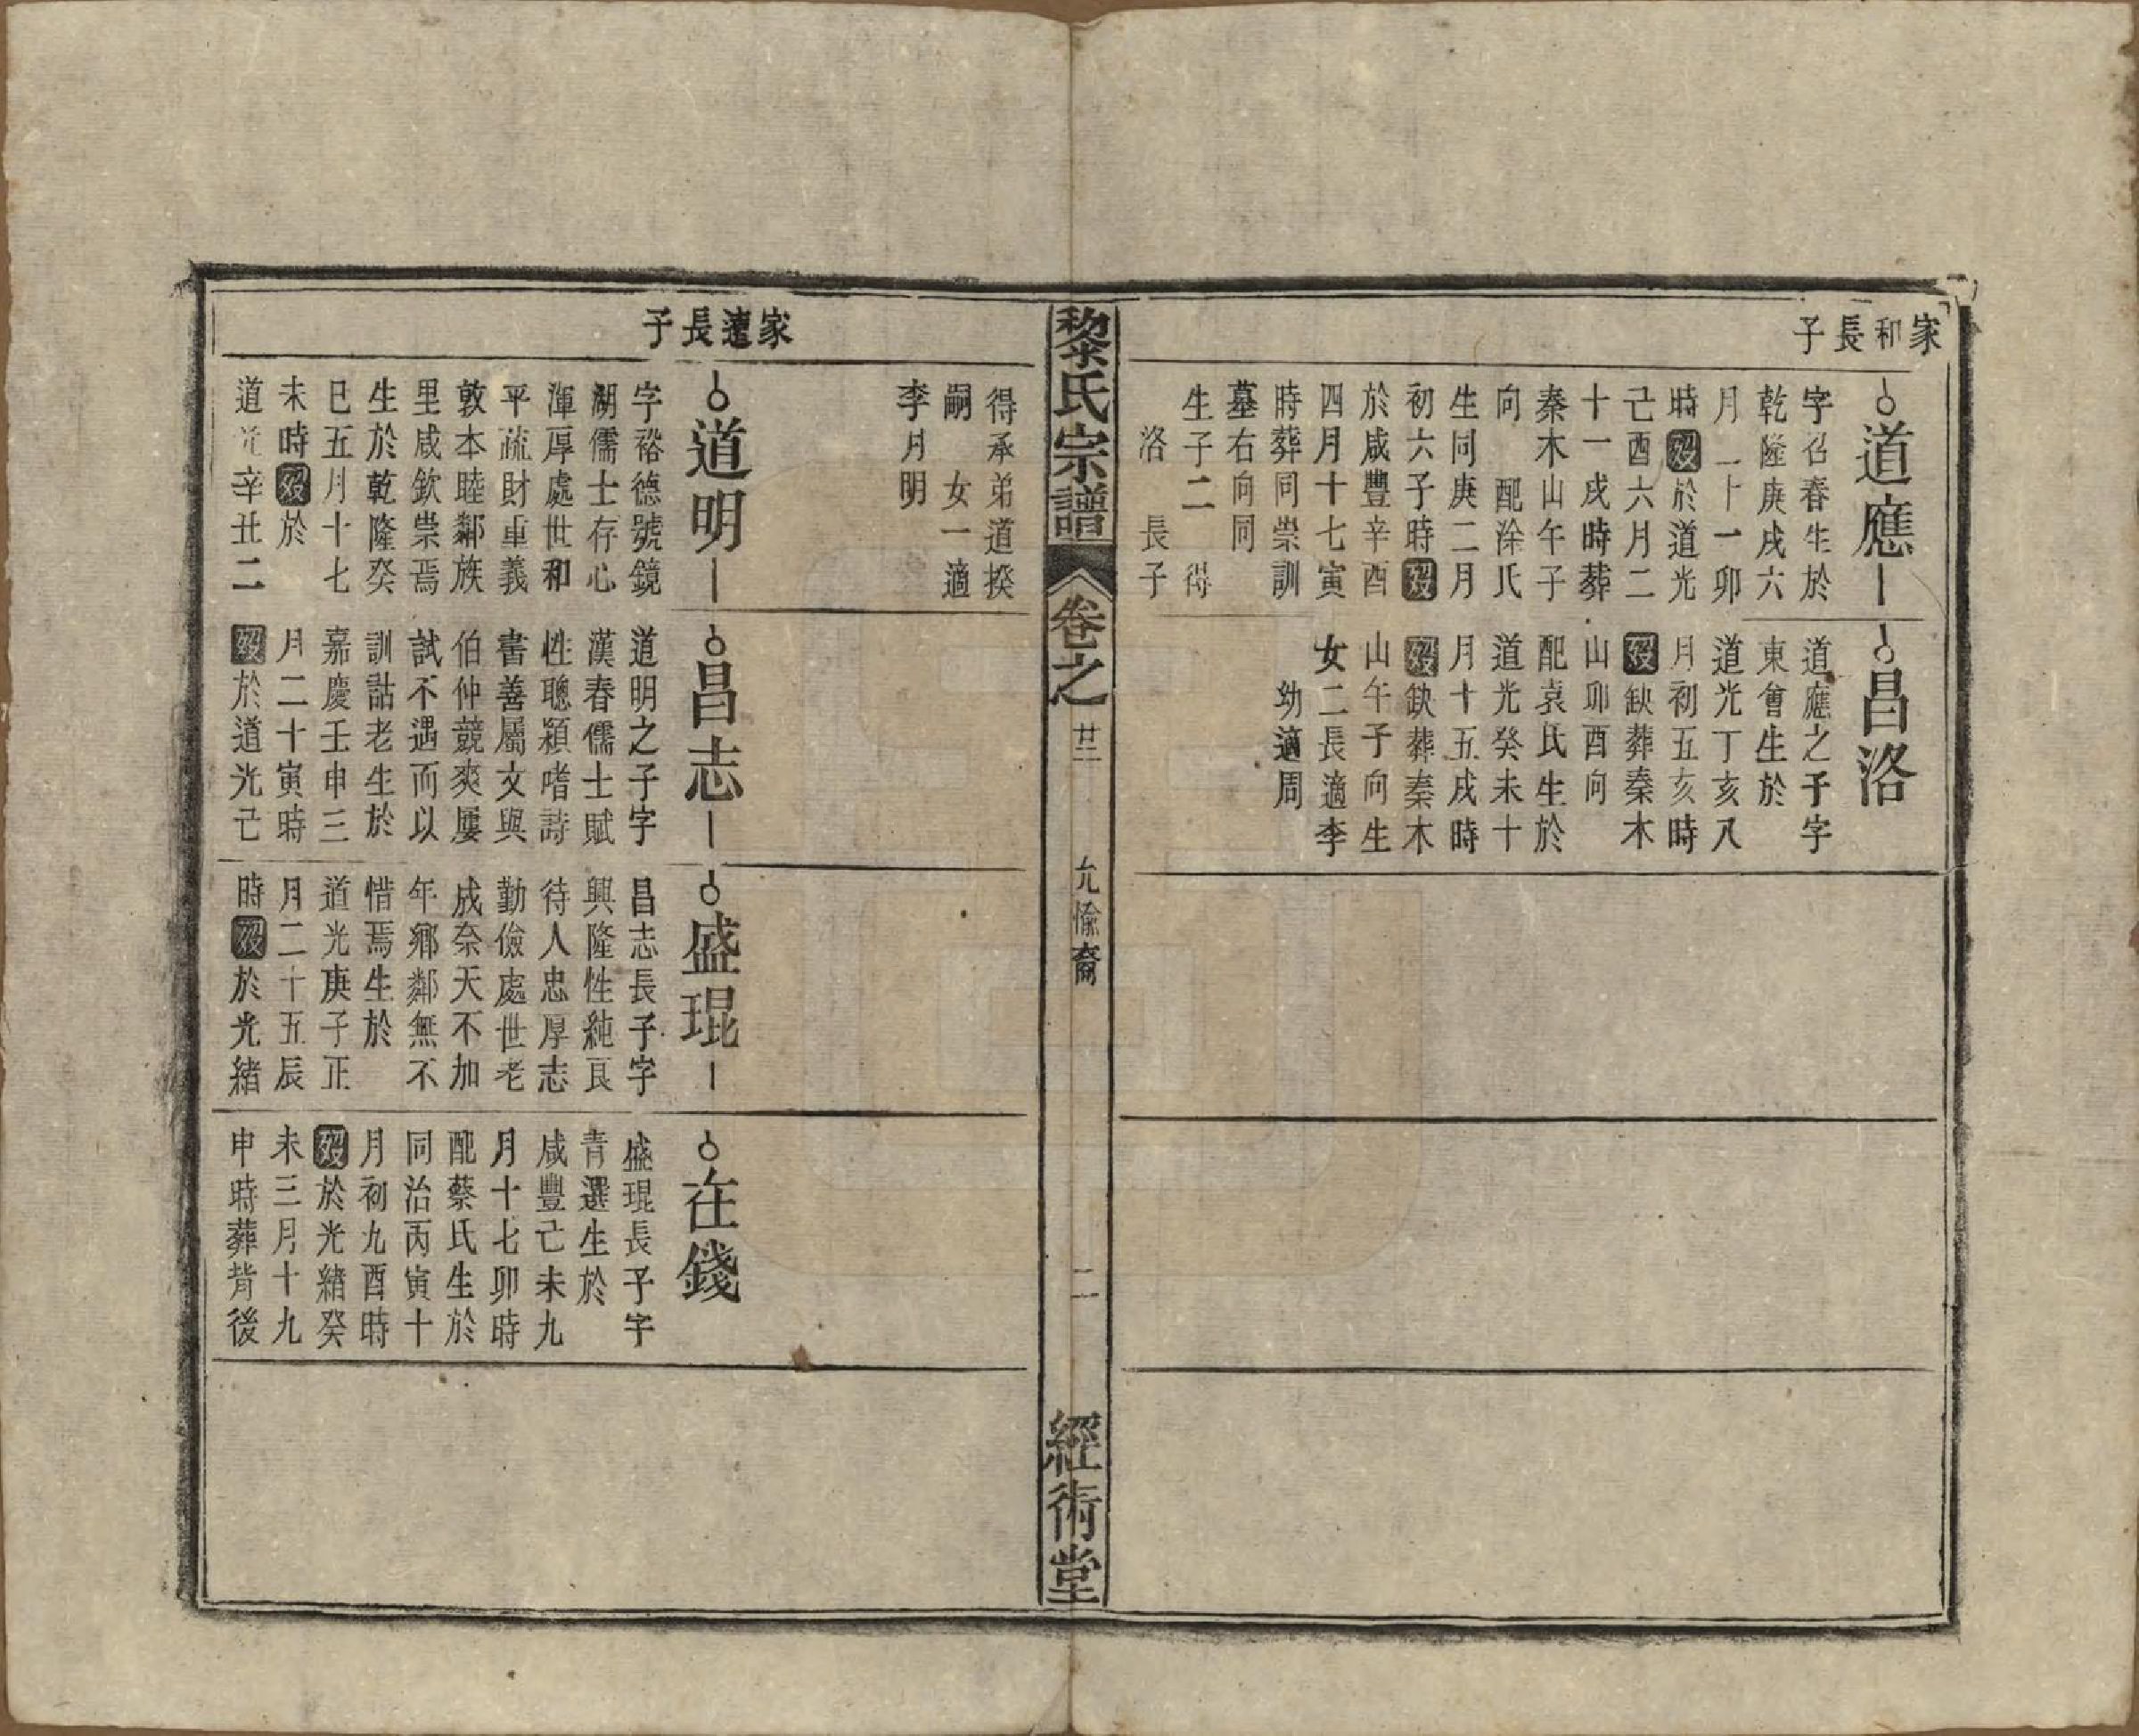 家和長子
道應
字召春生於
乾隆庚戌六
月二十一卯
時歿於道光
己酉六月二
十一戌時葬
秦木山午子
向　配涂氏
生同庚二月
初六子時歿
於咸豐辛酉
四月十七寅
時葬同崇訓
墓右向同
生子二　得
洛　長子
昌洛
道應之子字
東會生於
道光丁亥八
月初五亥時
歿缺葬秦木
山卯酉向
配袁氏生於
道光癸未十
月十五戌時
歿缺葬秦木
山午子向生
女二長適李
幼適周
黎氏宗譜
卷之
廿二
允愉裔
二
經術堂
得承弟道揆
嗣　女一適
李月明
家遠長子
道明
字裕德號鏡
湖儒士存心
渾厚處世和
平疏財重義
敦本睦鄰族
里咸欽崇焉
生於乾隆癸
巳五月十七
未時歿於
道光辛丑二
昌志
道明之子字
漢春儒士賦
性聰穎嗜詩
書善屬文與
伯仲競爽屢
試不遇而以
訓詁老生於
嘉慶壬申三
月二十寅時
歿於道光己
盛琨
昌志長子字
興隆性純良
待人忠厚志
勤儉處世老
成奈天不加
年鄉鄰無不
惜焉生於
道光庚子正
月二十五辰
時歿於光緒
在錢
盛琨長子字
青選生於
咸豐己未九
月十七卯時
配蔡氏生於
同治丙寅十
月初九酉時
歿於光緒癸
未三月十九
申時葬背後